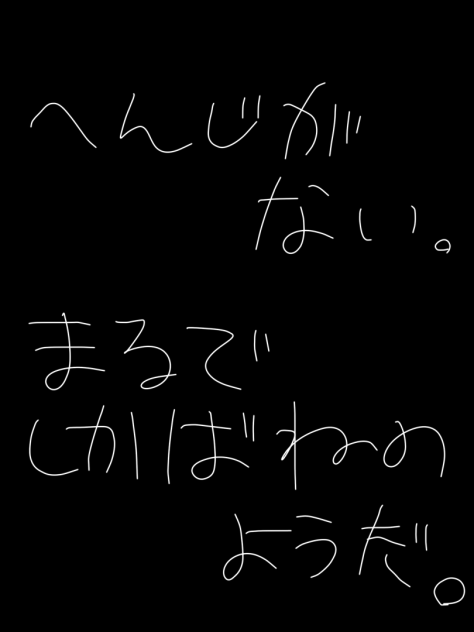 へんじが
ない。
まるで
しかばねの
ようだ。